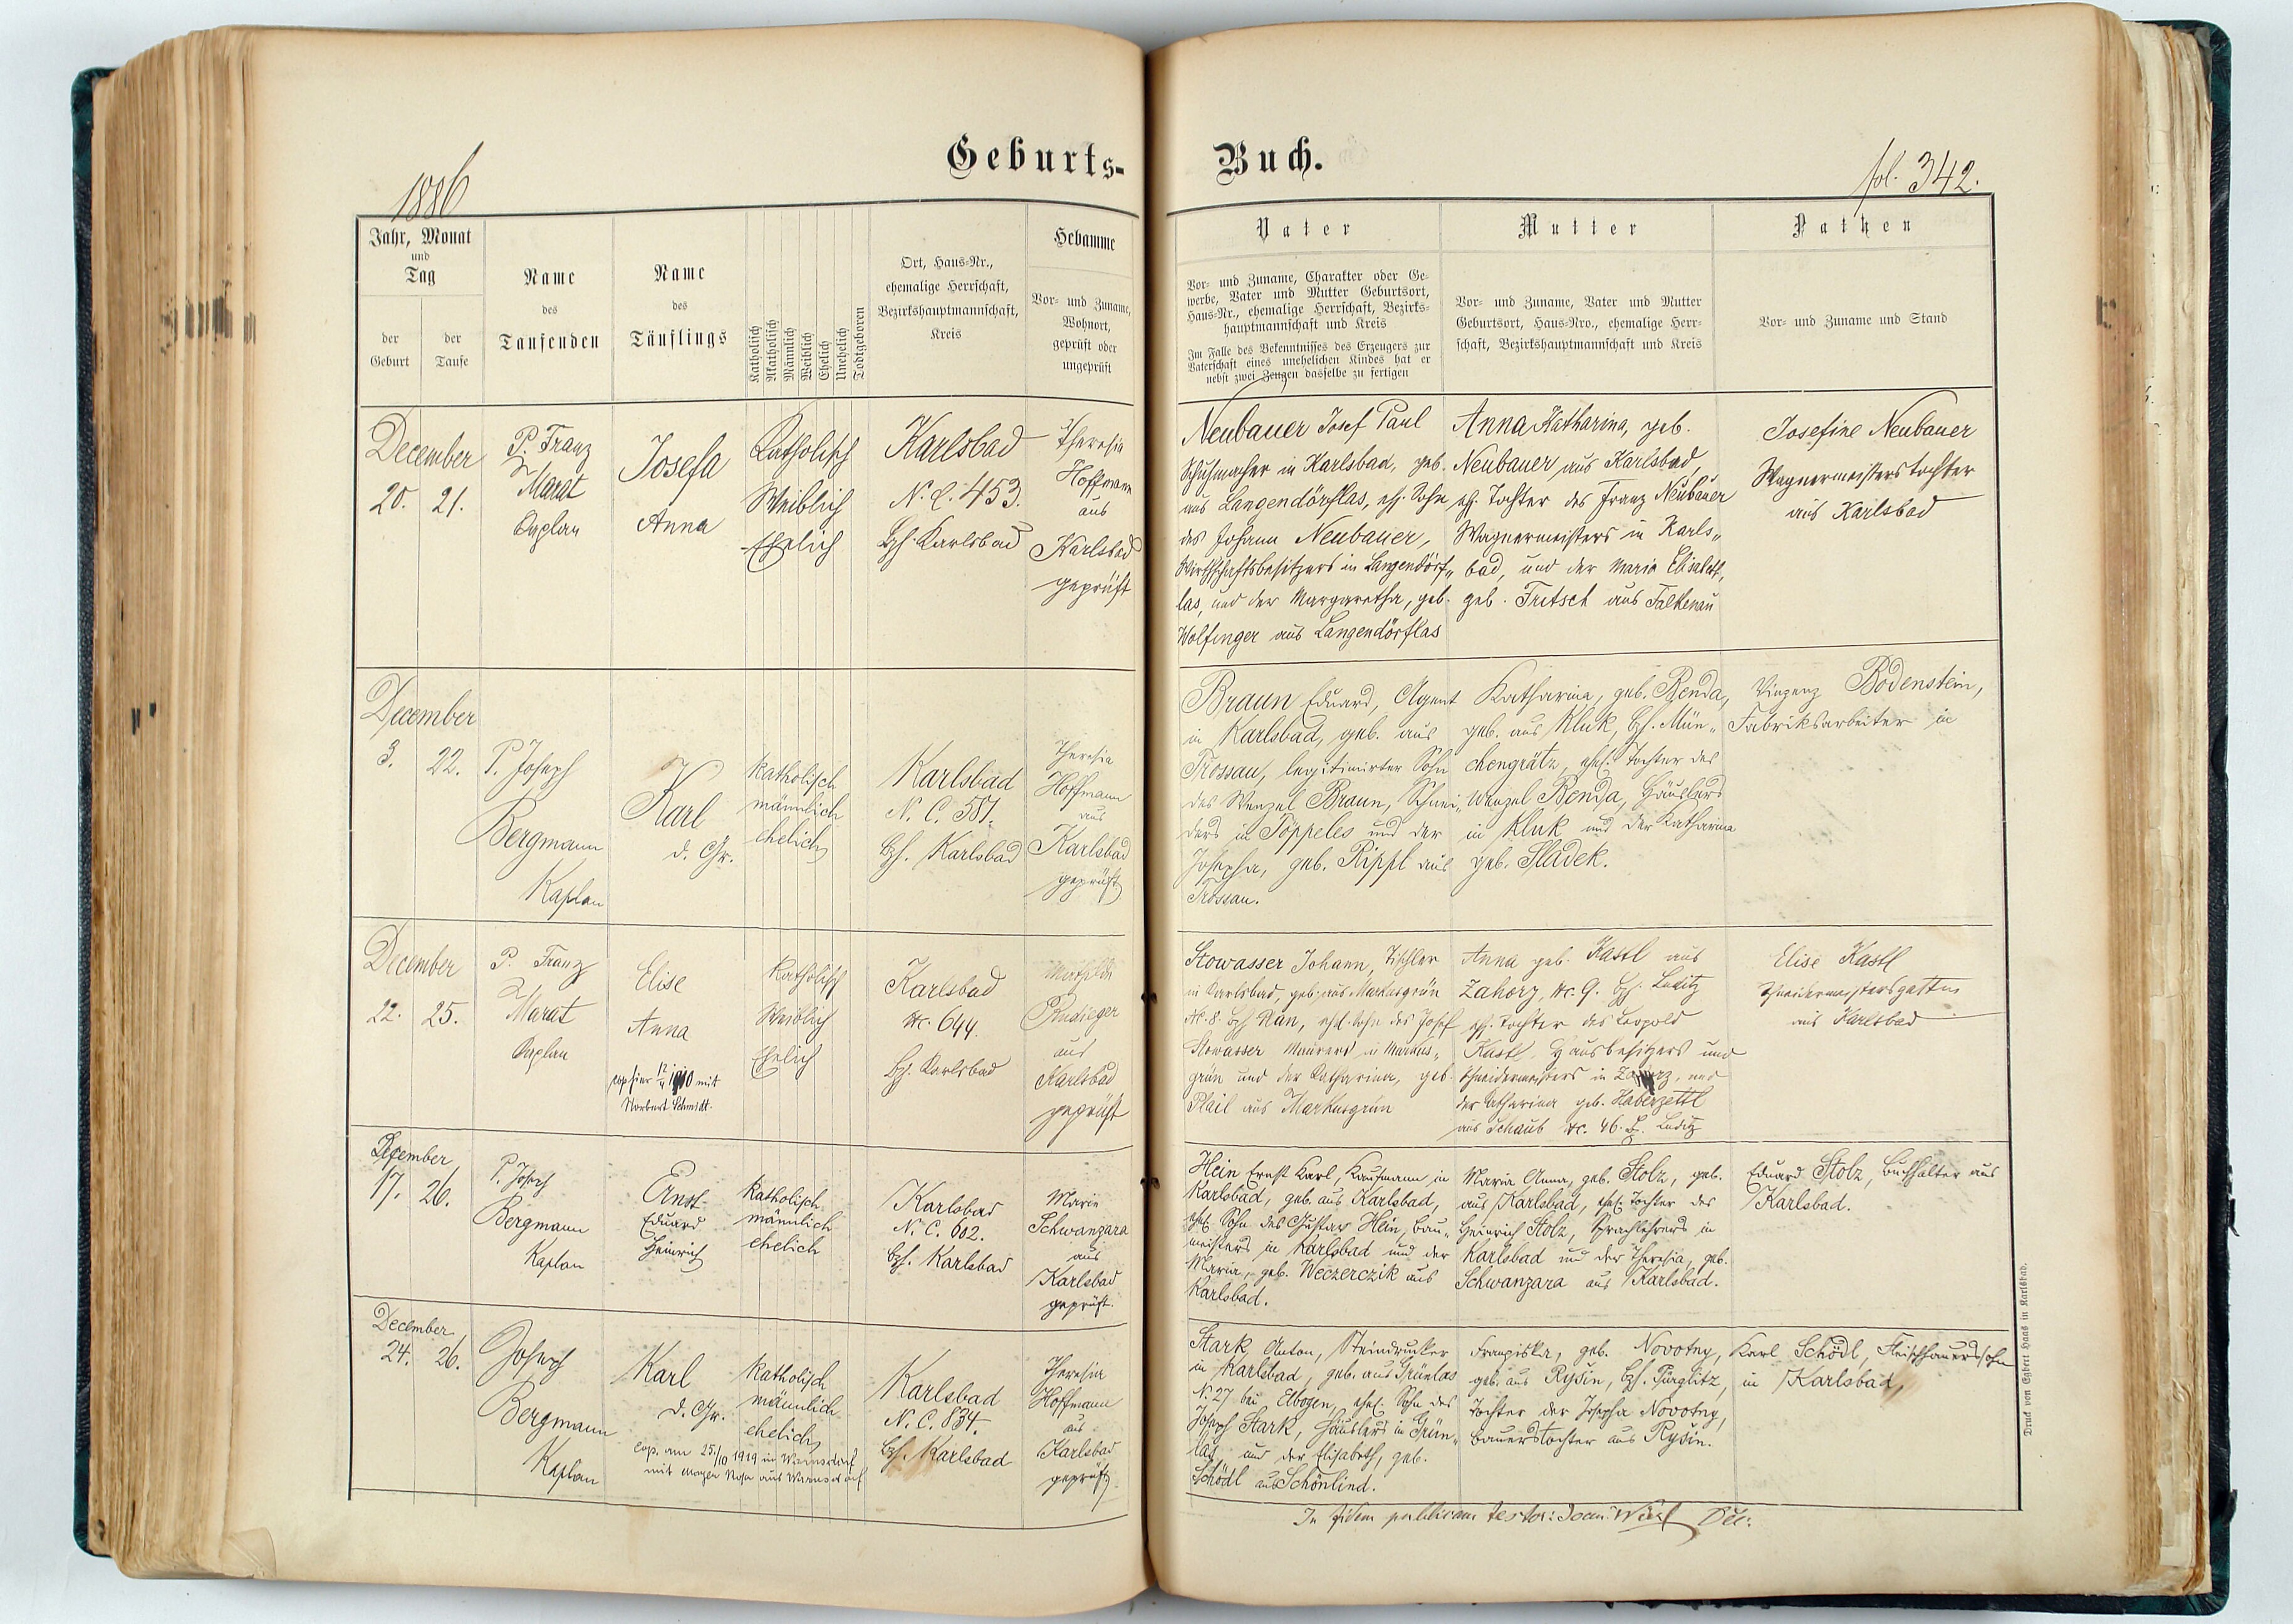 Geburts-
Buch.
1886
fol. 342.
Jahr, Monat
und
Tag
der
Geburt
der
Taufe
Name
des
Taufenden
Name
des
Täuflings
Katholisch
Akatholisch
Männlich
Weiblich
Ehelich
Unehelich
Todtgeboren
Ort, Haus-Nr.,
ehemalige Herrschaft,
Bezirkshauptmannschaft,
Kreis
Hebamme
Vor- und Zuname,
Wohnort,
geprüft oder
ungeprüft
Vater
Vor- und Zuname, Charakter oder Ge-
werbe, Vater und Mutter Geburtsort,
Haus-Nr., ehemalige Herrschaft, Bezirks-
hauptmannschaft und Kreis
Im Falle des Bekenntnisses des Erzeugers zur
Vaterschaft eines unehelichen Kindes hat er
nebst zwei Zeugen dasselbe zu fertigen
Mutter
Vor- und Zuname, Vater und Mutter
Geburtsort, Haus-Nro., ehemalige Herr-
schaft, Bezirkshauptmannschaft und Kreis
Pathen
Vor- und Zuname und Stand
December
20. 21.
P. Franz
Marat
Caplan
Josefa
Anna
Katholisch
Weiblich
Ehelich
Karlsbad
N. C. 453.
Bzh. Karlsbad
Theresia
Hoffmann
aus
Karlsbad
geprüft
Neubauer Josef Paul
Schuhmacher in Karlsbad, geb.
aus Langendörflas, eh. Sohn
des Johann Neubauer,
Wirthschaftsbesitzers in Langendörf„
las, und der Margaretha, geb.
Wolfinger aus Langendörflas
Anna Katharina, geb.
Neubauer aus Karlsbad,
eh. Tochter des Franz Neubauer
Wagnermeisters in Karls„
bad, und der Maria Elisabeth,
geb. Fritsch aus Falkenau
Josefine Neubauer
Wagnermeisterstochter
aus Karlsbad
December
3. 22.
P. Joseph
Bergmann
Kaplan
Karl
d. Gr.
katholisch
männlich
ehelich
Karlsbad
N. C. 581.
bzh. Karlsbad
Theresia
Hoffmann
aus
Karlsbad
geprüft
Braun Eduard, Agent
in Karlsbad, geb. aus
Trossau, legitimirter Sohn
des Wenzel Braun, Schnei„
ders in Töppeles und der
Josepha, geb. Rippl aus
Trossau.
Katharina, geb. Benda,
geb. aus Kluk, bzh. Mün„
chengrätz, ehel. Tochter des
Wenzel Benda, Häuslers
in Kluk und der Katharina
geb. Sladek.
Vinzenz Bodenstein,
Fabriksarbeiter in
December
22. 25.
P. Franz
Marat
Caplan
Elise
Anna
cop. hier 12/ 1910 mit
Norbert Schmidt.
Katholisch
Weiblich
Ehelich
Karlsbad
Nc. 644.
bz. Karlsbad
Mathilde
Rudinger
aus
Karlsbad
geprüft
Stowasser Johann, Tischler
in Karlsbad, geb. aus Markusgrün
Nc. 8. bzh Plan, ehel. Sohn des Josef
Stowasser Maurers in Markus„
grün und der Katharina, geb.
Plail aus Markusgrün
Anna geb. Kastl aus
Zahorz, Nc. 9. bzh. Luditz
eh. Tochter des Leopold
Kastl, Hausbesitzers und
Schneidermeisters in Zahorz, und
der Katharina geb. Haberzettl
aus Schaub Nc. 46. bz. Luditz
Elise Kastl
Schneidermeistersgattin
aus Karlsbad
Dezember
17. 26.
P. Joseph
Bergmann
Kaplan
Ernst
Eduard
Heinrich
katholisch
männlich
ehelich
Karlsbad
N. C. 602.
bzh. Karlsbad
Maria
Schwanzara
aus
Karlsbad
geprüft.
Hein Ernst Karl, Kaufmann in
Karlsbad, geb. aus Karlsbad,
ehel. Sohn des Gustav Hein, Bau„
meisters in Karlsbad und der
Maria, geb. Weczerczik aus
Karlsbad.
Maria Anna, geb. Stolz, geb.
aus Karlsbad, ehel. Tochter des
Heinrich Stolz, Sprachlehrers in
Karlsbad und der Theresia, geb.
Schwanzara aus Karlsbad.
Eduard Stolz, Buchhalter aus
Karlsbad.
December
24. 26.
Joseph
Bergmann
Kaplan
Karl
d. Gr.
cop. am 25./10 1919 in Warnsdorf
mit aus Warnsdorf
katholisch
männlich
ehelich
Karlsbad
N. C. 834.
bzh. Karlsbad
Theresia
Hoffmann
aus
Karlsbad
geprüft
Stark Anton, Steindrucker
in Karlsbad, geb. aus Grünlas
N. 27 bei Elbogen, ehel. Sohn des
Joseph Stark, Häuslers in Grün„
las und der Elisabeth, geb.
Schödl aus Schönlind.
Franziska, geb. Novotny,
geb. aus Rysin, bzh. Pürglitz,
Tochter der Josepha Novotny,
Bauerstochter aus Rysin.
Karl Schödl, Fleischhauerssohn
in Karlsbad,
In fidem publicam testor: Joan: Dec:
Druck von Egbert Haas in Karlsbad.